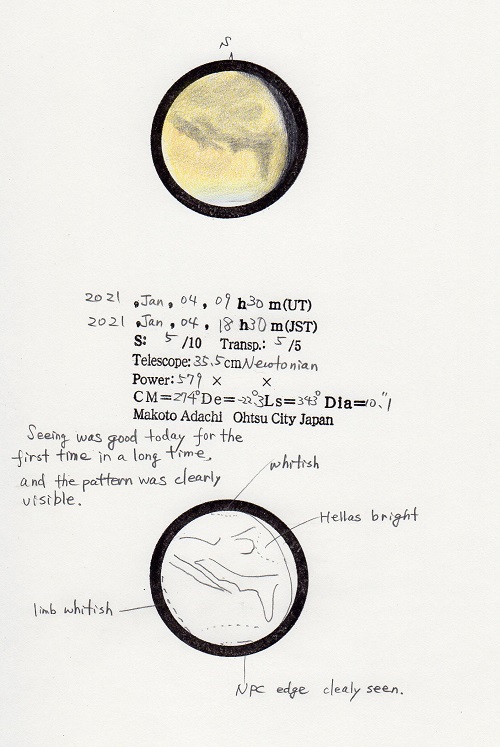 S
2021 , Jan , 04 , 09 h 30 m (UT)
2021 , Jan , 04 , 18 h 30 m (JST)
S: 5 /10 Transp.: 5 /5
Telescope: 35.5cm Newtonian
Power: 579 × ×
CM=274° De=-22.°3 Ls=343° Dia=10."1
Makoto Adachi Ohtsu City Japan
Seeing was good today for the
first time in a long time,
and the pattern was clearly
visible.
whitish
Hellas bright
limb whitish
NPC edge clealy seen.